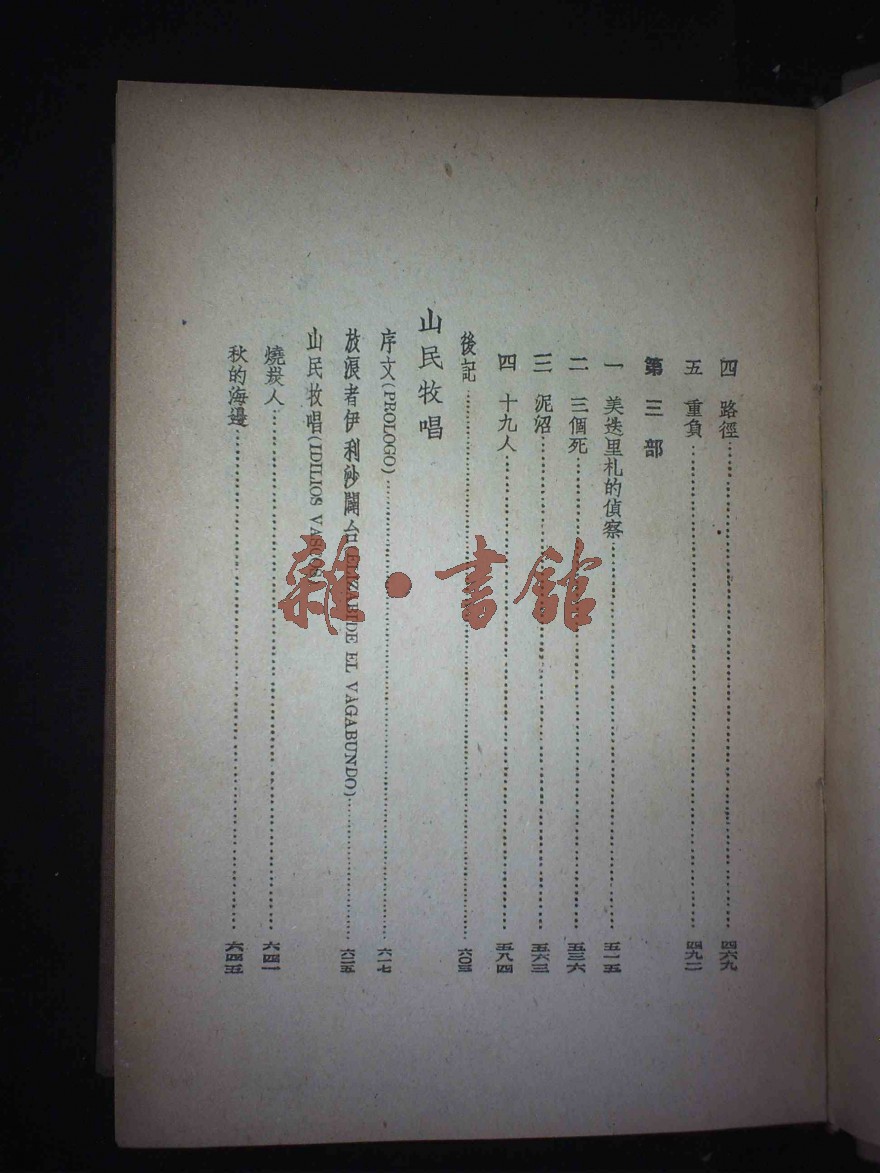 四 路徑……四六九
五 重負……四九二
第三部
一 美迭里札的偵察……五一五
二 三個死……五三六
三 泥沼……五六三
四 十九人……五八四
後記……六〇三
山民牧唱
序文(PROLOGO)……六一七
放浪者伊利沙闢台(ELIZABIDE EL VAGABUNDO)……六二五
山民牧唱(IDILIOS VASCOS)
燒炭人……六四一
秋的海邊……六四五
雜·書館